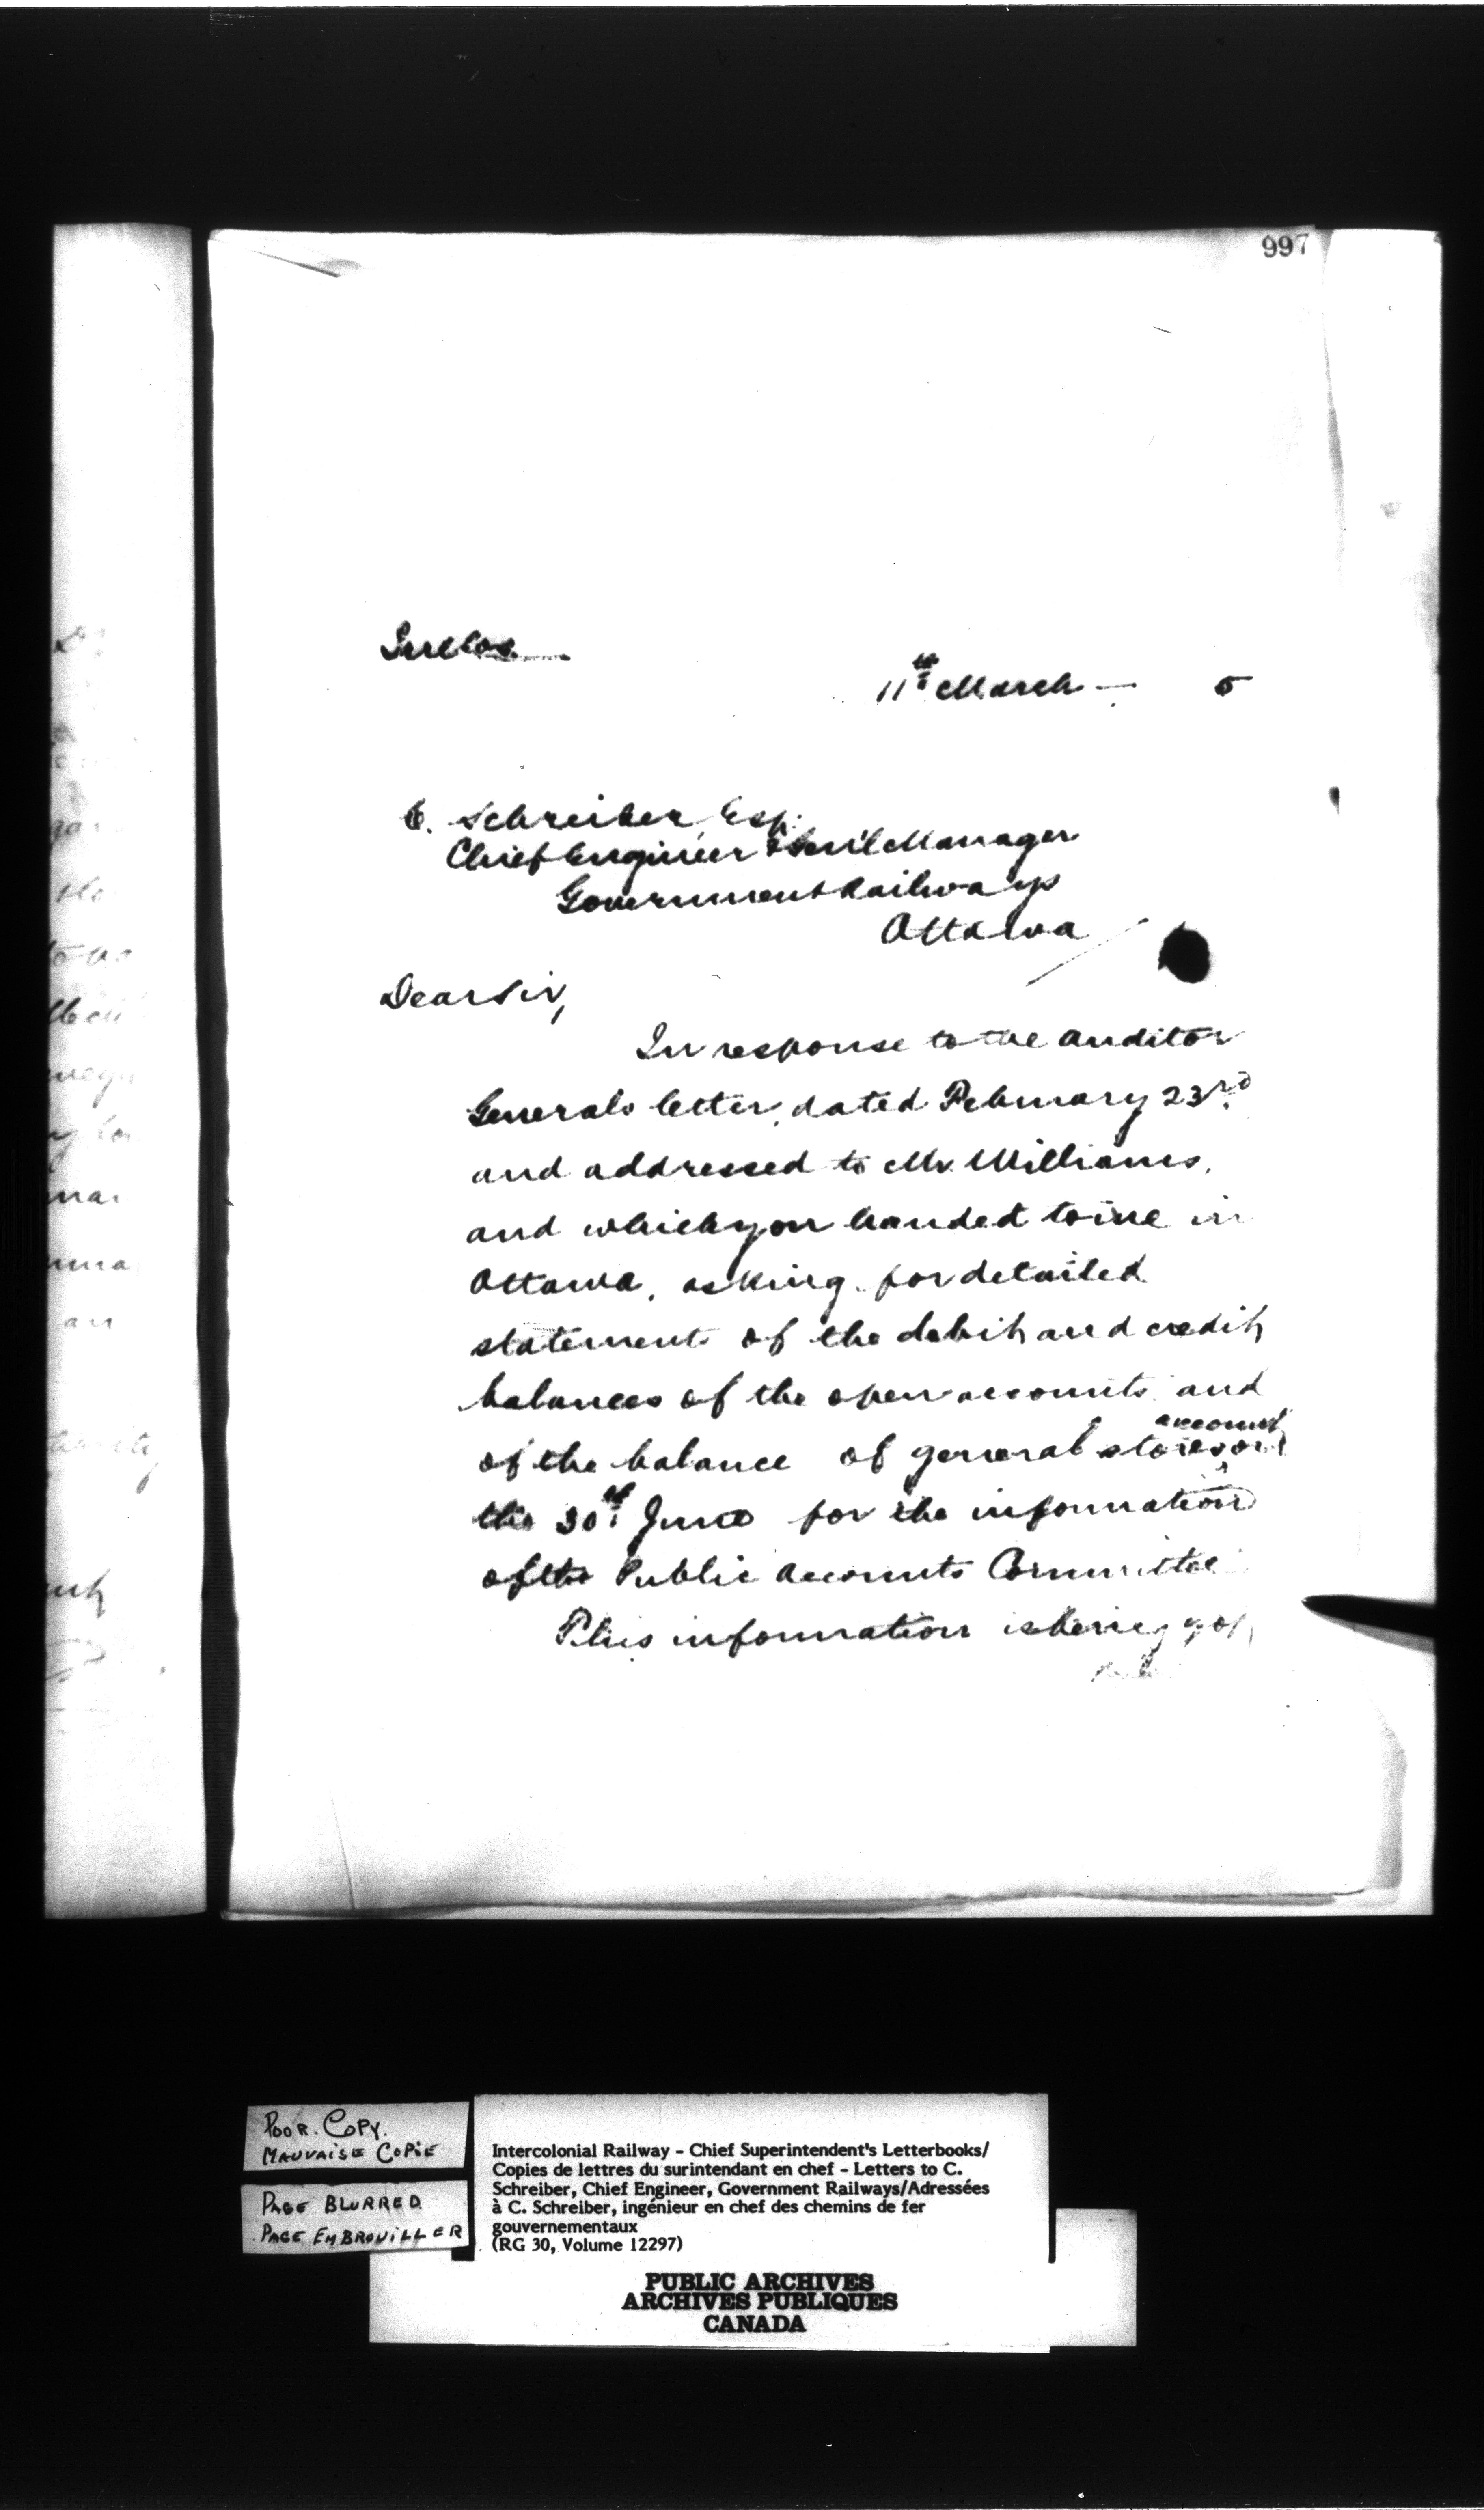 997
Inclos.
11th March — 5
C. Schreiber Esq.
Chief Engineer & Gen'l Manager
Government Railways
Ottawa
Dear Sir,
In response to the Auditor
Generals letter, dated February 23rd
and addressed to Mr. Williams,
and which you handed to me in
Ottawa, asking for detailed
statements of the debit and credit
balances of the open accounts and
account
of the balance of general stores on
the 30th June for the information
of the Public Accounts Committee
This information is being got
POOR COPY.
MAUVAISE COPIE
PAGE BLURRED
PAGE EMBROUILLER
Intercolonial Railway - Chief Superintendent's Letterbooks/
Copies de lettres du surintendant en chef - Letters to C.
Schreiber, Chief Engineer, Government Railways/Adressées
à C. Schreiber, ingénieur en chef des chemins de fer
gouvernementaux
(RG 30, Volume 12297)
PUBLIC ARCHIVES
ARCHIVES PUBLIQUES
CANADA